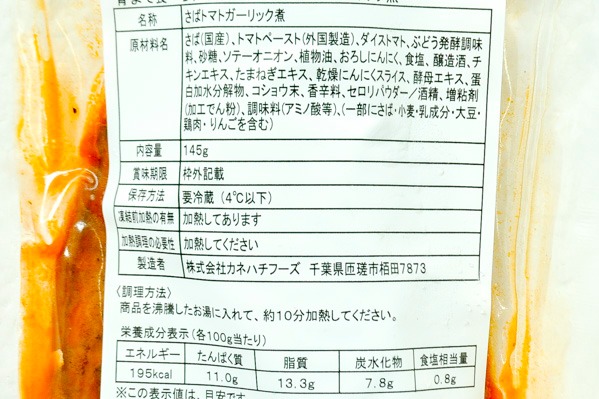 名称 さばトマトガーリック煮
原材料名 さば(国産)、トマトペースト(外国製造)、ダイストマト、ぶどう発酵調味
料、砂糖、ソテーオニオン、植物油、おろしにんにく、食塩、醸造酒、チ
キンエキス、たまねぎエキス、乾燥にんにくスライス、酵母エキス、蛋
白加水分解物、コショウ末、香辛料、セロリパウダー/酒精、増粘剤
(加工でん粉)、調味料(アミノ酸等)、(一部にさば・小麦・乳成分・大豆・
鶏肉・りんごを含む)
内容量 145g
賞味期限 枠外記載
保存方法 要冷蔵 (4℃以下)
凍結前加熱の有無 加熱してあります
加熱調理の必要性 加熱してください
製造者 株式会社カネハチフーズ 千葉県匝瑳市栢田7873
〈調理方法〉
商品を沸騰したお湯に入れて、約10分加熱してください。
栄養成分表示(各100g当たり)
エネルギー たんぱく質 脂質 炭水化物 食塩相当量
195kcal 11.0g 13.3g 7.8g 0.8g
※この表示値は、目安です